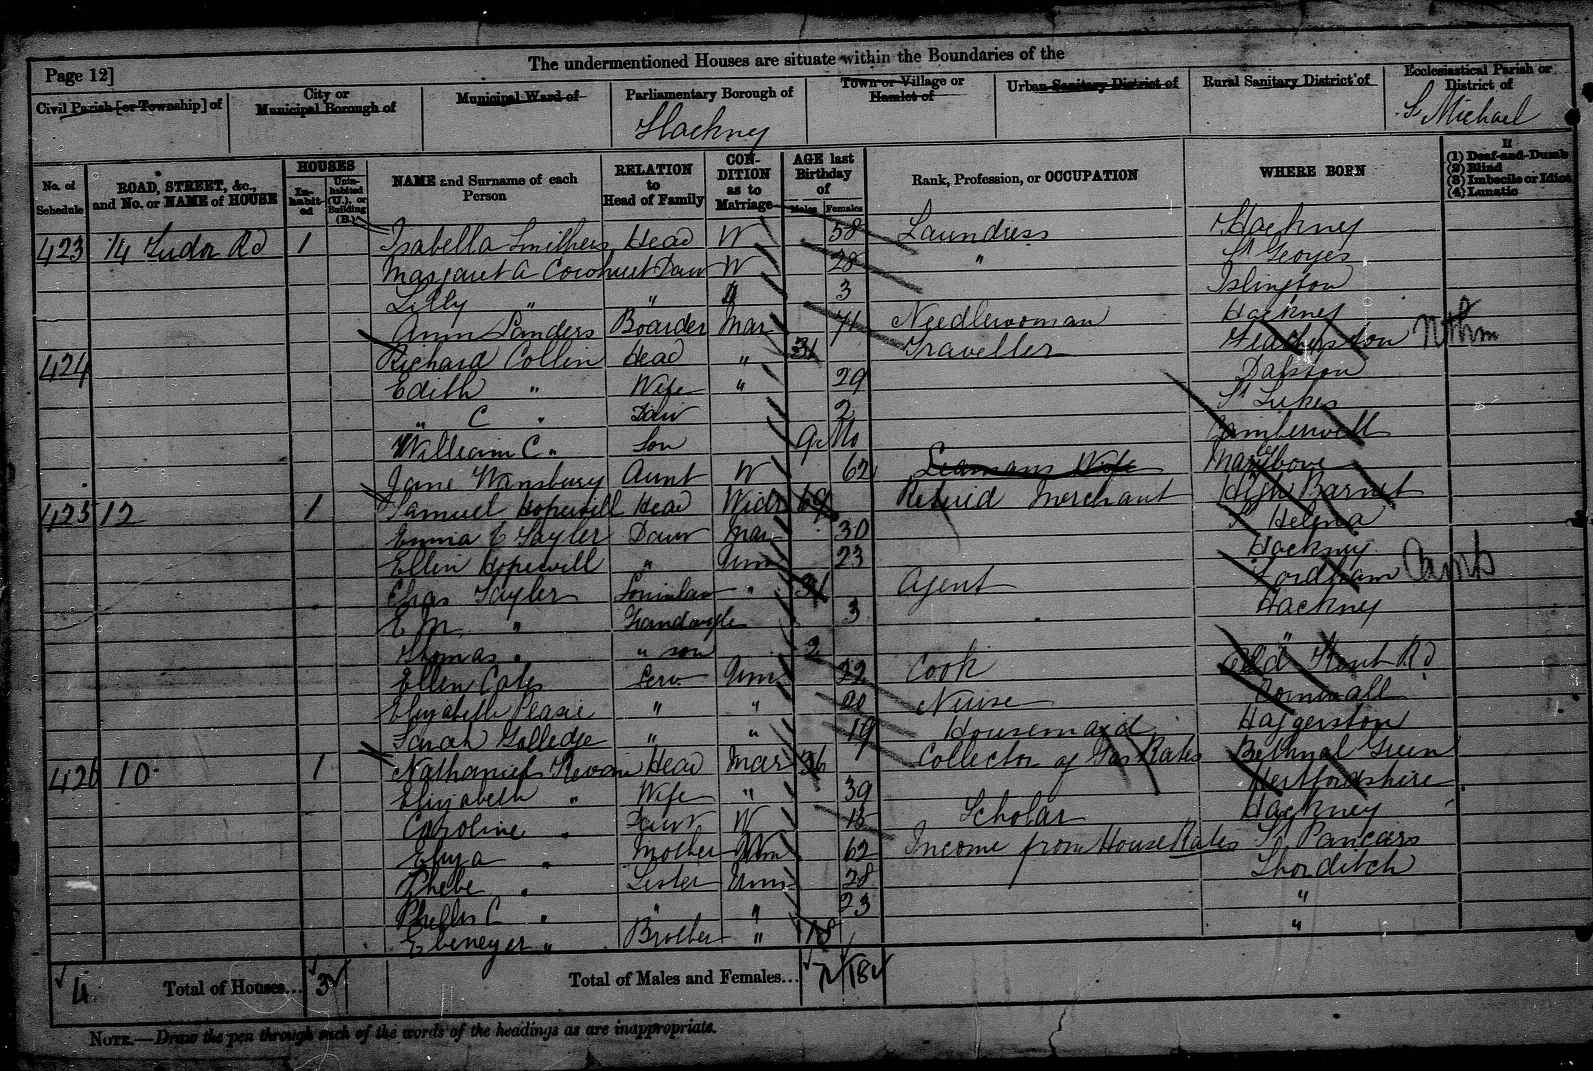 The undermentioned Houses are situate within the Boundaries of the
Page 12]
Civil Parish [or Township] of
City or Municipal Borough of
Municipal Ward of
Parliamentary Borough of
Town or Village or Hamlet of
Urban Sanitary District of
Rural Sanitary District of
Ecclesiastical Parish or District of
Hackney
St Michael
No. of Schedule
ROAD, STREET, &c., and No. or NAME of HOUSE
HOUSES
In-habit-ed
Unin-habited (U.), or Building (B.)
NAME and Surname of each Person
RELATION to Head of Family
CON-DITION as to Marriage
AGE last Birthday of
Males
Females
Rank, Profession, or OCCUPATION
WHERE BORN
If
(1) Deaf-and-Dumb
(2) Blind
(3) Imbecile or Idiot
(4) Lunatic
423 14 Tudor Rd 1 Isabella Smithers Head W 58 Laundress Hackney
Margaret A Daur W 28 " St Georges
Lilly " " 3 Islington
Ann Sanders Boarder Mar 71 Needlewoman Hackney
424 Richard Collen Head " 31 Traveller Nthm
Edith " Wife " 29 Dalston
" C " Daur 2 St Lukes
William C " Son 9 Mo Camberwell
Jane Wansbury Aunt W 62 Seamans Wife
425 12 1 Samuel Hopewill Head Widr 69 Retired Merchant High Barnet
Emma E Tayler Daur Mar 30 St Helena
Ellen Hopewill " Unm 23 Hackney
Chas Tayler Soninlaw " 31 Agent Fordham Camb
E M " 3 Hackney
Thomas " " son 2 "
Ellen Serv Unm 22 Cook Old Kent Rd
Elizabeth Pearse " " 20 Nurse Cornwall
Sarah Golledge " " 19 Housemaid Haggerston
426 10 1 Nathaniel Kevan Head Mar 36 Collector of Gas Rates Bethnal Green
Elizabeth " Wife " 39 Hertfordshire
Caroline " Daur 15 Scholar Hackney
Eliza " Mother 62 Income from House Rates St Pancras
Phebe " Sister Unm 28 Shorditch
Phillis C " " " 23 "
Ebenezer " Brother " 18 "
4 Total of Houses... 3 Total of Males and Females... 7 18
NOTE.—Draw the pen through such of the words of the headings as are inappropriate.